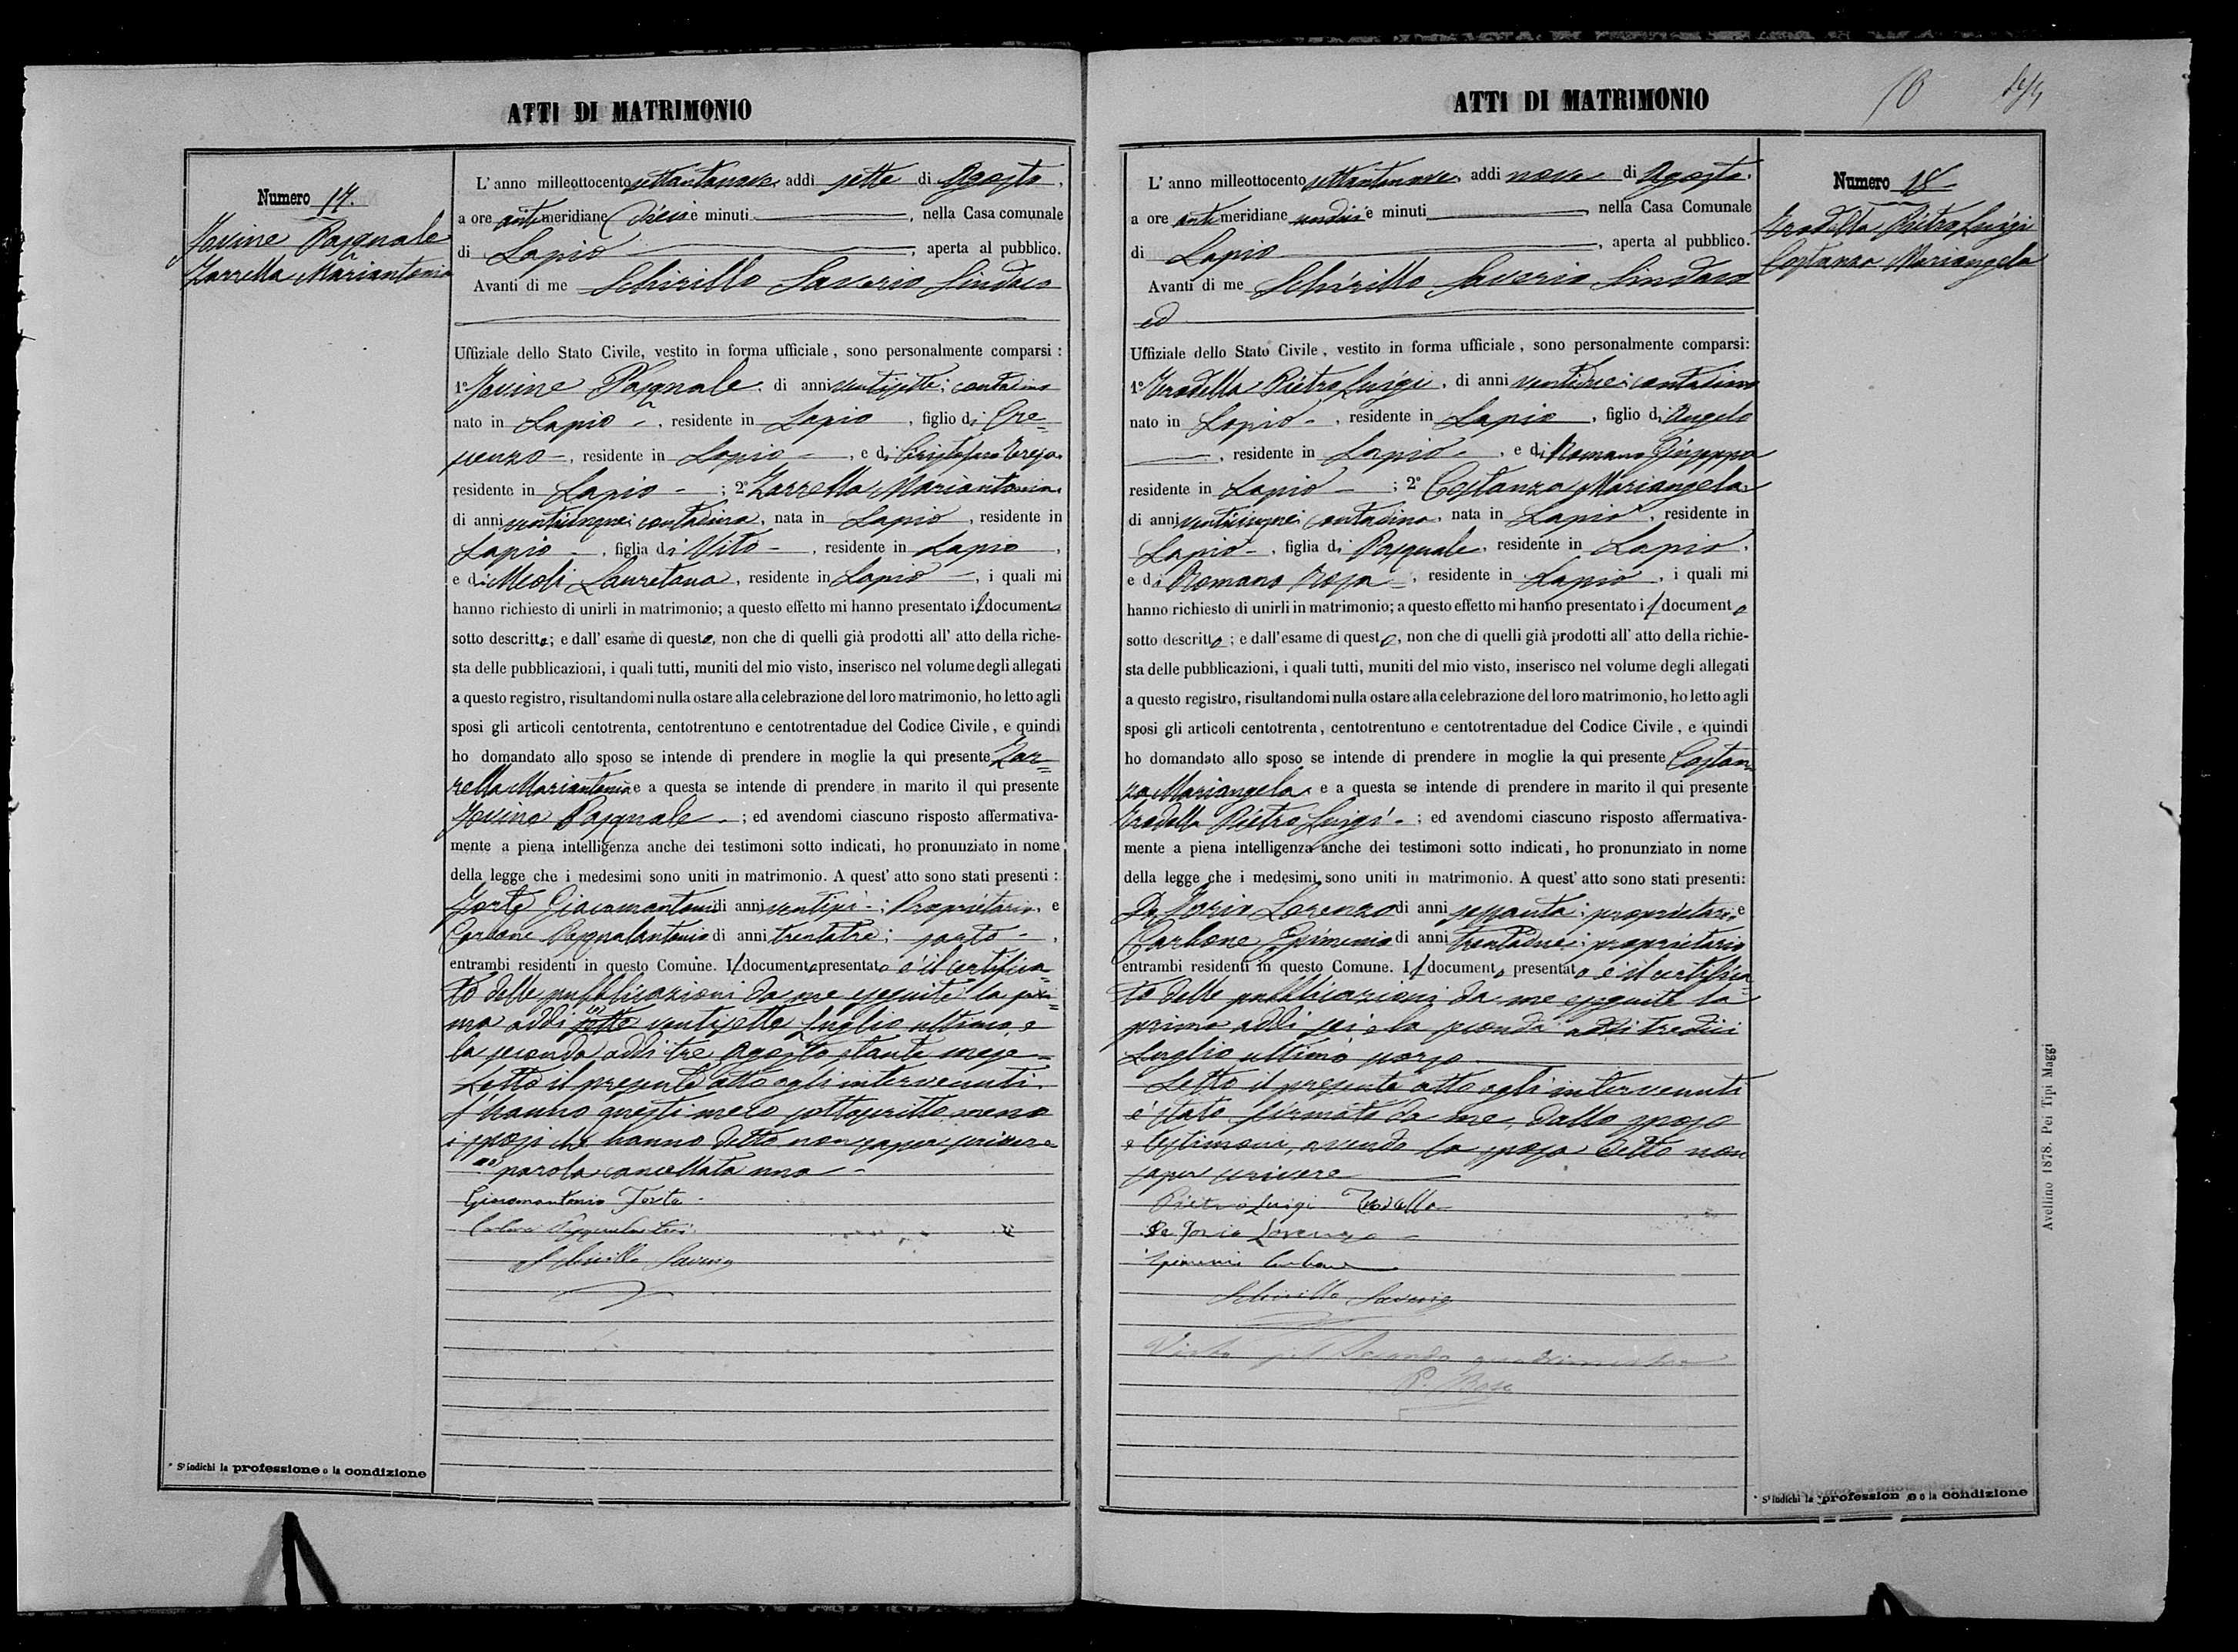 ATTI DI MATRIMONIO
Numero 17.
Iovine Pasquale
Zarrella Mariantonia
L' anno milleottocento settantanove, addi sette di Agosto,
a ore anti meridiane dieci e minuti, nella Casa comunale
di Lapio, aperta al pubblico.
Avanti di me Schirillo Saverio Sindaco
Uffiziale dello Stato Civile, vestito in forma ufficiale, sono personalmente comparsi:
1º Iovine Pasquale, di anni ventisette; contadino
nato in Lapio, residente in Lapio, figlio di Cre=
scenzo, residente in Lapio, e di Cristofaro Teresa
residente in Lapio; 2º Zarrella Mariantonia
di anni venticinque; contadina, nata in Lapio, residente in
Lapio, figlia di Vito, residente in Lapio,
e di Meoli Lauretana, residente in Lapio, i quali mi
hanno richiesto di unirli in matrimonio; a questo effetto mi hanno presentato il documento
sotto descritto; e dall' esame di questo, non che di quelli già prodotti all' atto della riche-
sta delle pubblicazioni, i quali tutti, muniti del mio visto, inserisco nel volume degli allegati
a questo registro, risultandomi nulla ostare alla celebrazione del loro matrimonio, ho letto agli
sposi gli articoli centotrenta, centotrentuno e centotrentadue del Codice Civile, e quindi
ho domandato allo sposo se intende di prendere in moglie la qui presente Zar=
rella Mariantonia e a questa se intende di prendere in marito il qui presente
Iovine Pasquale; ed avendomi ciascuno risposto affermativa-
mente a piena intelligenza anche dei testimoni sotto indicati, ho pronunziato in nome
della legge che i medesimi sono uniti in matrimonio. A quest' atto sono stati presenti:
Forte Giacomantonio di anni ventisei; Proprietario, e
Carbone Pasqualantonio di anni trentatre; sarto,
entrambi residenti in questo Comune. Il documento presentato è il certifica=
to delle pubblicazioni da me eseguite la pri=
ma addi sette ventisette Luglio ultimo, e
la seconda addi tre Agosto stante mese=
Letto il presente atto agli intervenuti
l' hanno questi meco sottoscritto, meno
i sposi che hanno detto non saper scrivere
parola cancellata una
Giacomantonio Forte
Carbone Pasqualantonio
Schirillo Saverio
* S' indichi la professione o la condizione
ATTI DI MATRIMONIO
Numero 18
Trodella Pietro Luigi
Costanza Mariangela
L' anno milleottocento settantanove, addi nove di Agosto,
a ore anti meridiane undici e minuti, nella Casa Comunale
di Lapio, aperta al pubblico.
Avanti di me Schirillo Saverio Sindaco
ed
Uffiziale dello Stato Civile, vestito in forma ufficiale, sono personalmente comparsi:
1º Trodella Pietro Luigi, di anni ventidue; contadino
nato in Lapio, residente in Lapio, figlio di Angelo
, residente in Lapio, e di Romano Giuseppa
residente in Lapio; 2º Costanza Mariangela
di anni venticinque; contadina, nata in Lapio, residente in
Lapio, figlia di Pasquale, residente in Lapio,
e di Romano Rosa, residente in Lapio, i quali mi
hanno richiesto di unirli in matrimonio; a questo effetto mi hanno presentato il documento
sotto descritto; e dall' esame di questo, non che di quelli già prodotti all' atto della richie-
sta delle pubblicazioni, i quali tutti, muniti del mio visto, inserisco nel volume degli allegati
a questo registro, risultandomi nulla ostare alla celebrazione del loro matrimonio, ho letto agli
sposi gli articoli centotrenta, centotrentuno e centotrentadue del Codice Civile, e quindi
ho domandato allo sposo se intende di prendere in moglie la qui presente Costan=
za Mariangela e a questa se intende di prendere in marito il qui presente
Trodella Pietro Luigi; ed avendomi ciascuno risposto affermativa-
mente a piena intelligenza anche dei testimoni sotto indicati, ho pronunziato in nome
della legge che i medesimi sono uniti in matrimonio. A quest' atto sono stati presenti:
De Iorio Lorenzo di anni sessanta; proprietario e
Carbone Epimenio di anni trentadue; proprietario
entrambi residenti in questo Comune. Il documento presentato è il certifica=
to delle pubblicazioni da me eseguite la
prima addi sei e la seconda addi tredici
Luglio ultimo scorso
Letto il presente atto agli intervenuti
è stato firmato da me, dallo sposo
e testimoni, avendo la sposa detto non
saper scrivere
Pietro Luigi Trodella
De Iorio Lorenzo
Epimenio Carbone
Schirillo Saverio
Visto pel Secondo quadrimestre
* S' indichi la profession e o la condizione
Avellino 1878. Pei Tipi Maggi